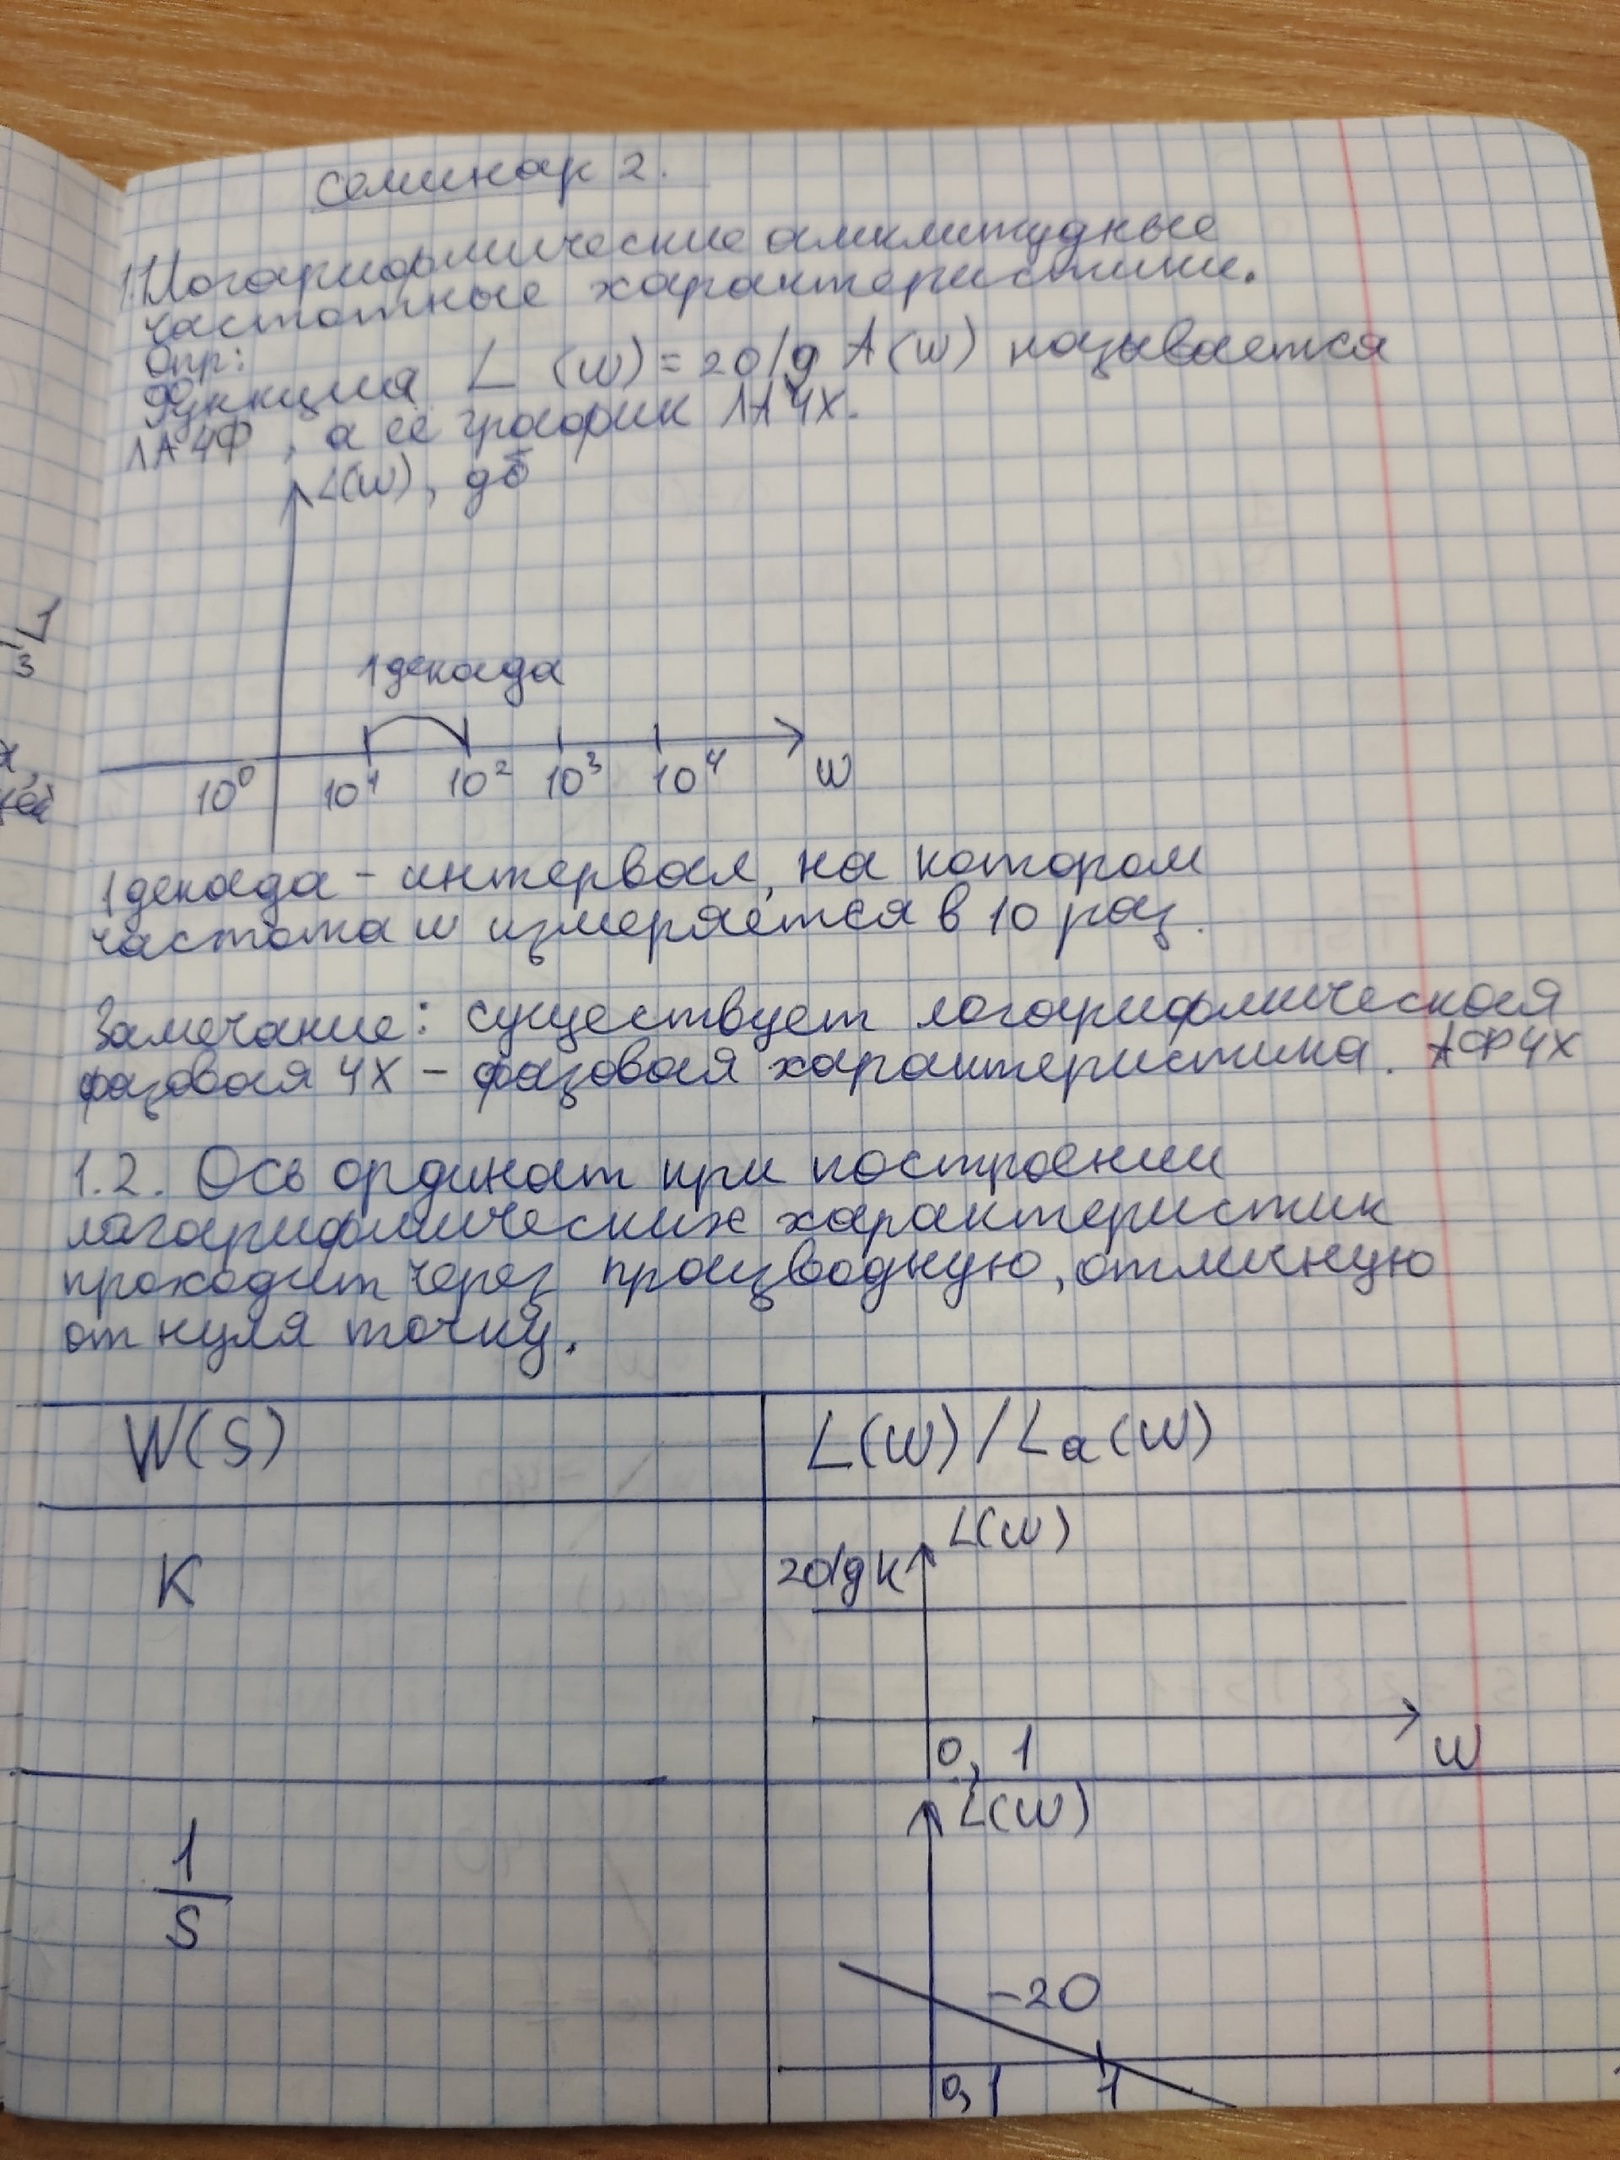 Семинар 2.
1. Логарифмические амплитудные
частотные характеристики.
Опр:
Функция L (w) = 20lg A(w) называется
ЛАЧФ, а её график ЛАЧХ.
L(w), дб
1 декада
10⁰ 10¹ 10² 10³ 10⁴ w
1 декада - интервал, на котором
частота w измеряется в 10 раз.
Замечание: существует логарифмическая
фазовая ЧХ - фазовая характеристика. ЛФЧХ
1.2. Ось ординат при построении
логарифмических характеристик
проходит через производную, отличную
от нуля точку.
W(S) L(w)/La(w)
L(w)
K 20lgK
0,1 w
L(w)
1/S
-20
0,1 1
-1/3